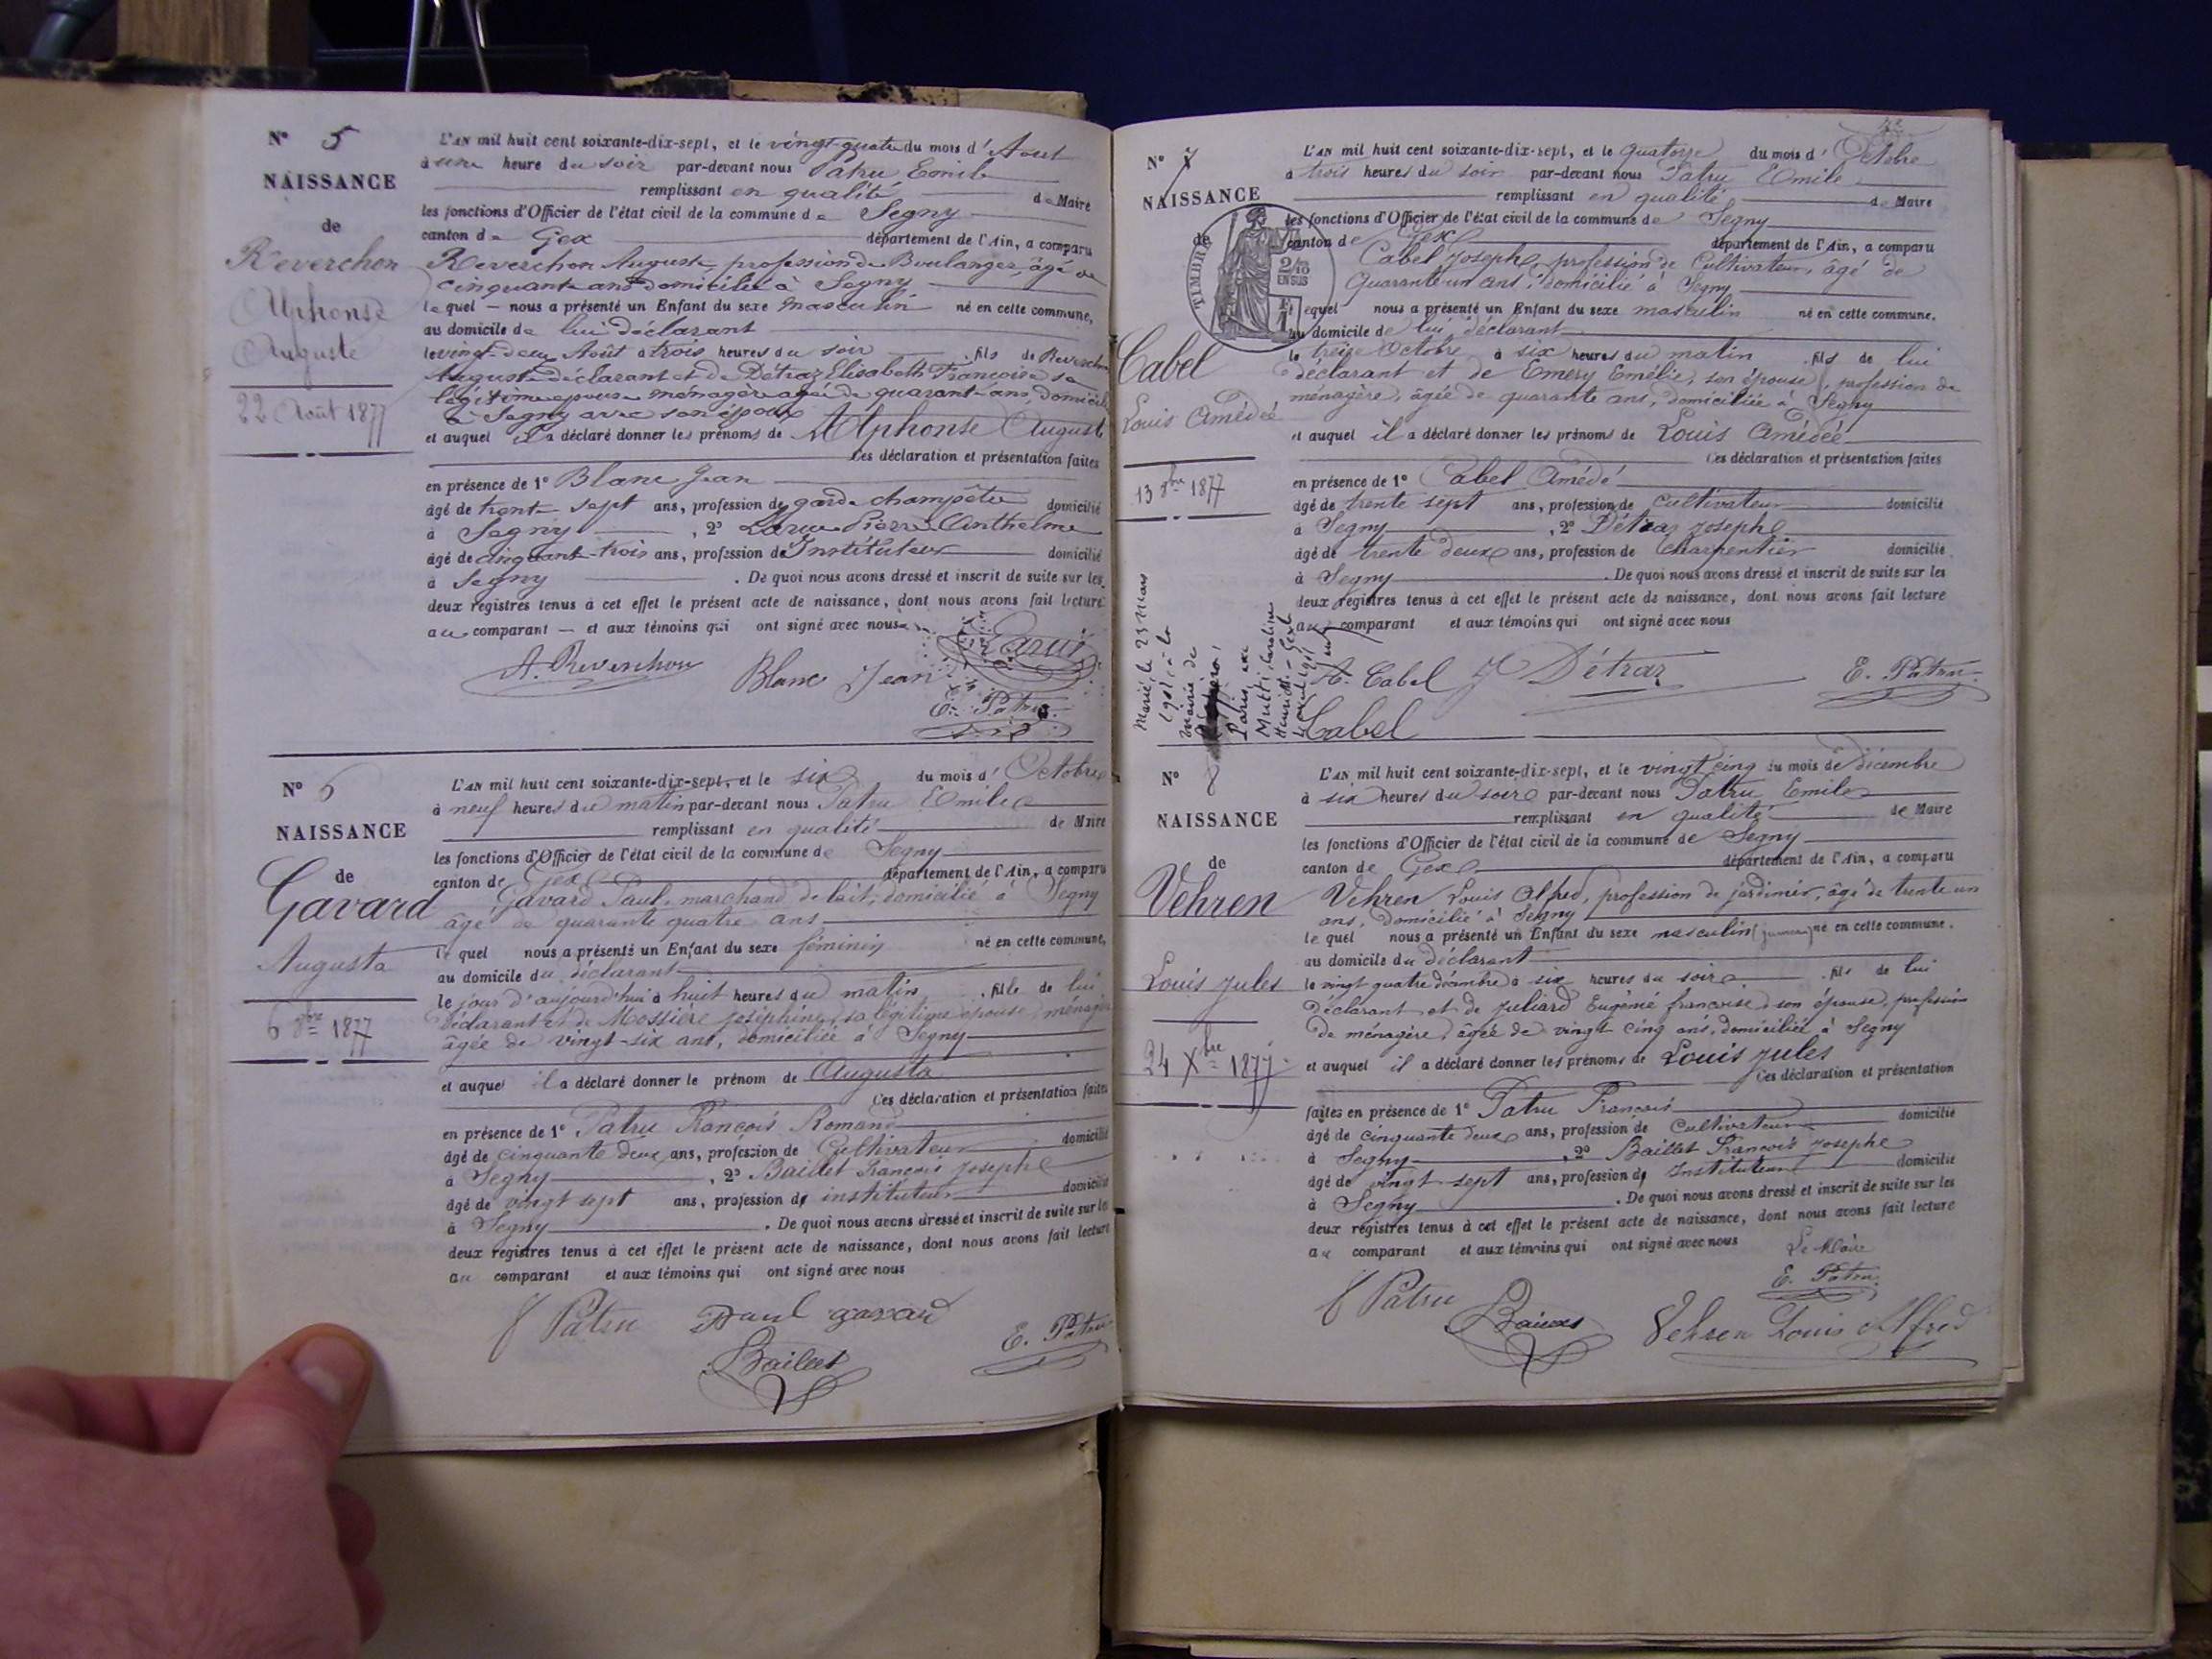 N° 5
NAISSANCE
de
Reverchon
Alphonse
Auguste
22 Août 1877
L'AN mil huit cent soixante-dix-sept, et le vingt-quatre du mois d'Aout
à une heure du soir par-devant nous Patru Emile
remplissant en qualité de Maire
les fonctions d'Officier de l'état civil de la commune de Segny
canton de Gex département de l'Ain, a comparu
Reverchon Auguste, profession de Boulanger, âgé de
cinquante ans domicilié à Segny
lequel — nous a présenté un Enfant du sexe masculin né en cette commune,
au domicile de lui déclarant
le vingt-deux Août à trois heures du soir , fils de Reverchon
Auguste déclarant et de Détraz Elisabeth Françoise sa
légitime épouse ménagère agée de quarante ans, domicilié
à Segny avec son époux
et auquel il a déclaré donner les prénoms de Alphonse Auguste
Ces déclaration et présentation faites
en présence de 1° Blanc Jean
âgé de trente-sept ans, profession de garde champêtre domicilié
à Segny , 2° Larue Pierre Anthelme
âgé de cinquante-trois ans, profession d'Instituteur domicilié
à Segny . De quoi nous avons dressé et inscrit de suite sur les
deux registres tenus à cet effet le présent acte de naissance, dont nous avons fait lecture
au comparant — et aux témoins qui ont signé avec nous
A. Reverchon Blanc Jean Larue
E. Patru
N° 6
NAISSANCE
de
Gavard
Augusta
6 8bre 1877
L'AN mil huit cent soixante-dix-sept, et le six du mois d'Octobre
à neuf heures du matin par-devant nous Patru Emile
remplissant en qualité de Maire
les fonctions d'Officier de l'état civil de la commune de Segny
canton de Gex département de l'Ain, a comparu
Gavard Paul, marchand de lait, domicilié à Segny
âgé de quarante quatre ans
lequel nous a présenté un Enfant du sexe féminin né en cette commune,
au domicile du déclarant
le jour d'aujourd'hui à huit heures du matin , fille de lui
déclarant et de Mossière Joséphine, sa légitime épouse, ménagère
âgée de vingt-six ans, domiciliée à Segny
et auquel il a déclaré donner le prénom de Augusta
Ces déclaration et présentation faites
en présence de 1° Patru François Romand
âgé de cinquante deux ans, profession de Cultivateur domicilié
à Segny , 2° Baillet François Josephe
âgé de vingt sept ans, profession d'instituteur domicilié
à Segny . De quoi nous avons dressé et inscrit de suite sur les
deux registres tenus à cet effet le présent acte de naissance, dont nous avons fait lecture
au comparant et aux témoins qui ont signé avec nous
f Patru Paul gavard
Baillet E. Patru
N° 7
NAISSANCE
de
TIMBRE
2/10
EN SUS
Cabel
Louis Amédéé
13 8bre 1877
Marié le 23 Mars
mairie de
L'AN mil huit cent soixante-dix-sept, et le quatorze du mois d'Octobre
à trois heures du soir par-devant nous Patru Emile
remplissant en qualité de Maire
les fonctions d'Officier de l'état civil de la commune de Segny
canton de Gex département de l'Ain, a comparu
Cabel Josephe, profession de Cultivateur, âgé de
Quarante-un ans, domicilié à Segny
lequel nous a présenté un Enfant du sexe masculin né en cette commune,
au domicile de lui déclarant
le treize Octobre à six heures du matin , fils de lui
déclarant et de Emery Emélie, son épouse, profession de
ménagère, âgée de quarante ans, domiciliée à Segny
et auquel il a déclaré donner les prénoms de Louis Amédéé
Ces déclaration et présentation faites
en présence de 1° Cabel Amédé
âgé de trente sept ans, profession de Cultivateur domicilié
à Segny , 2° Détraz Josephe
âgé de trente deux ans, profession de Charpentier domicilié
à Segny . De quoi nous avons dressé et inscrit de suite sur les
deux registres tenus à cet effet le présent acte de naissance, dont nous avons fait lecture
au comparant et aux témoins qui ont signé avec nous
A. Cabel J Détraz E. Patru
Cabel
N° 8
NAISSANCE
de
Vehren
Louis Jules
24 Xbre 1877
L'AN mil huit cent soixante-dix-sept, et le vingt cinq du mois de décembre
à six heures du soir par-devant nous Patru Emile
remplissant en qualité de Maire
les fonctions d'Officier de l'état civil de la commune de Segny
canton de Gex département de l'Ain, a comparu
Vehren Louis Alfred, profession de jardinier, âgé de trente un
ans, domicilié à Segny
lequel nous a présenté un Enfant du sexe masculin né en cette commune,
au domicile du déclarant
le vingt quatre décembre à six heures du soir , fils de lui
déclarant et de Juliard Eugénie françoise son épouse, profession
de ménagère, âgée de vingt cinq ans, domiciliée à Segny
et auquel il a déclaré donner les prénoms de Louis Jules
Ces déclaration et présentation
faites en présence de 1° Patru François domicilié
âgé de cinquante deux ans, profession de Cultivateur
à Segny , 2° Baillet François Josephe
âgé de vingt sept ans, profession d'Instituteur domicilié
à Segny . De quoi nous avons dressé et inscrit de suite sur les
deux registres tenus à cet effet le présent acte de naissance, dont nous avons fait lecture
au comparant et aux témoins qui ont signé avec nous
Le Maire
E. Patru
f Patru Baillet Vehren Louis Alfred